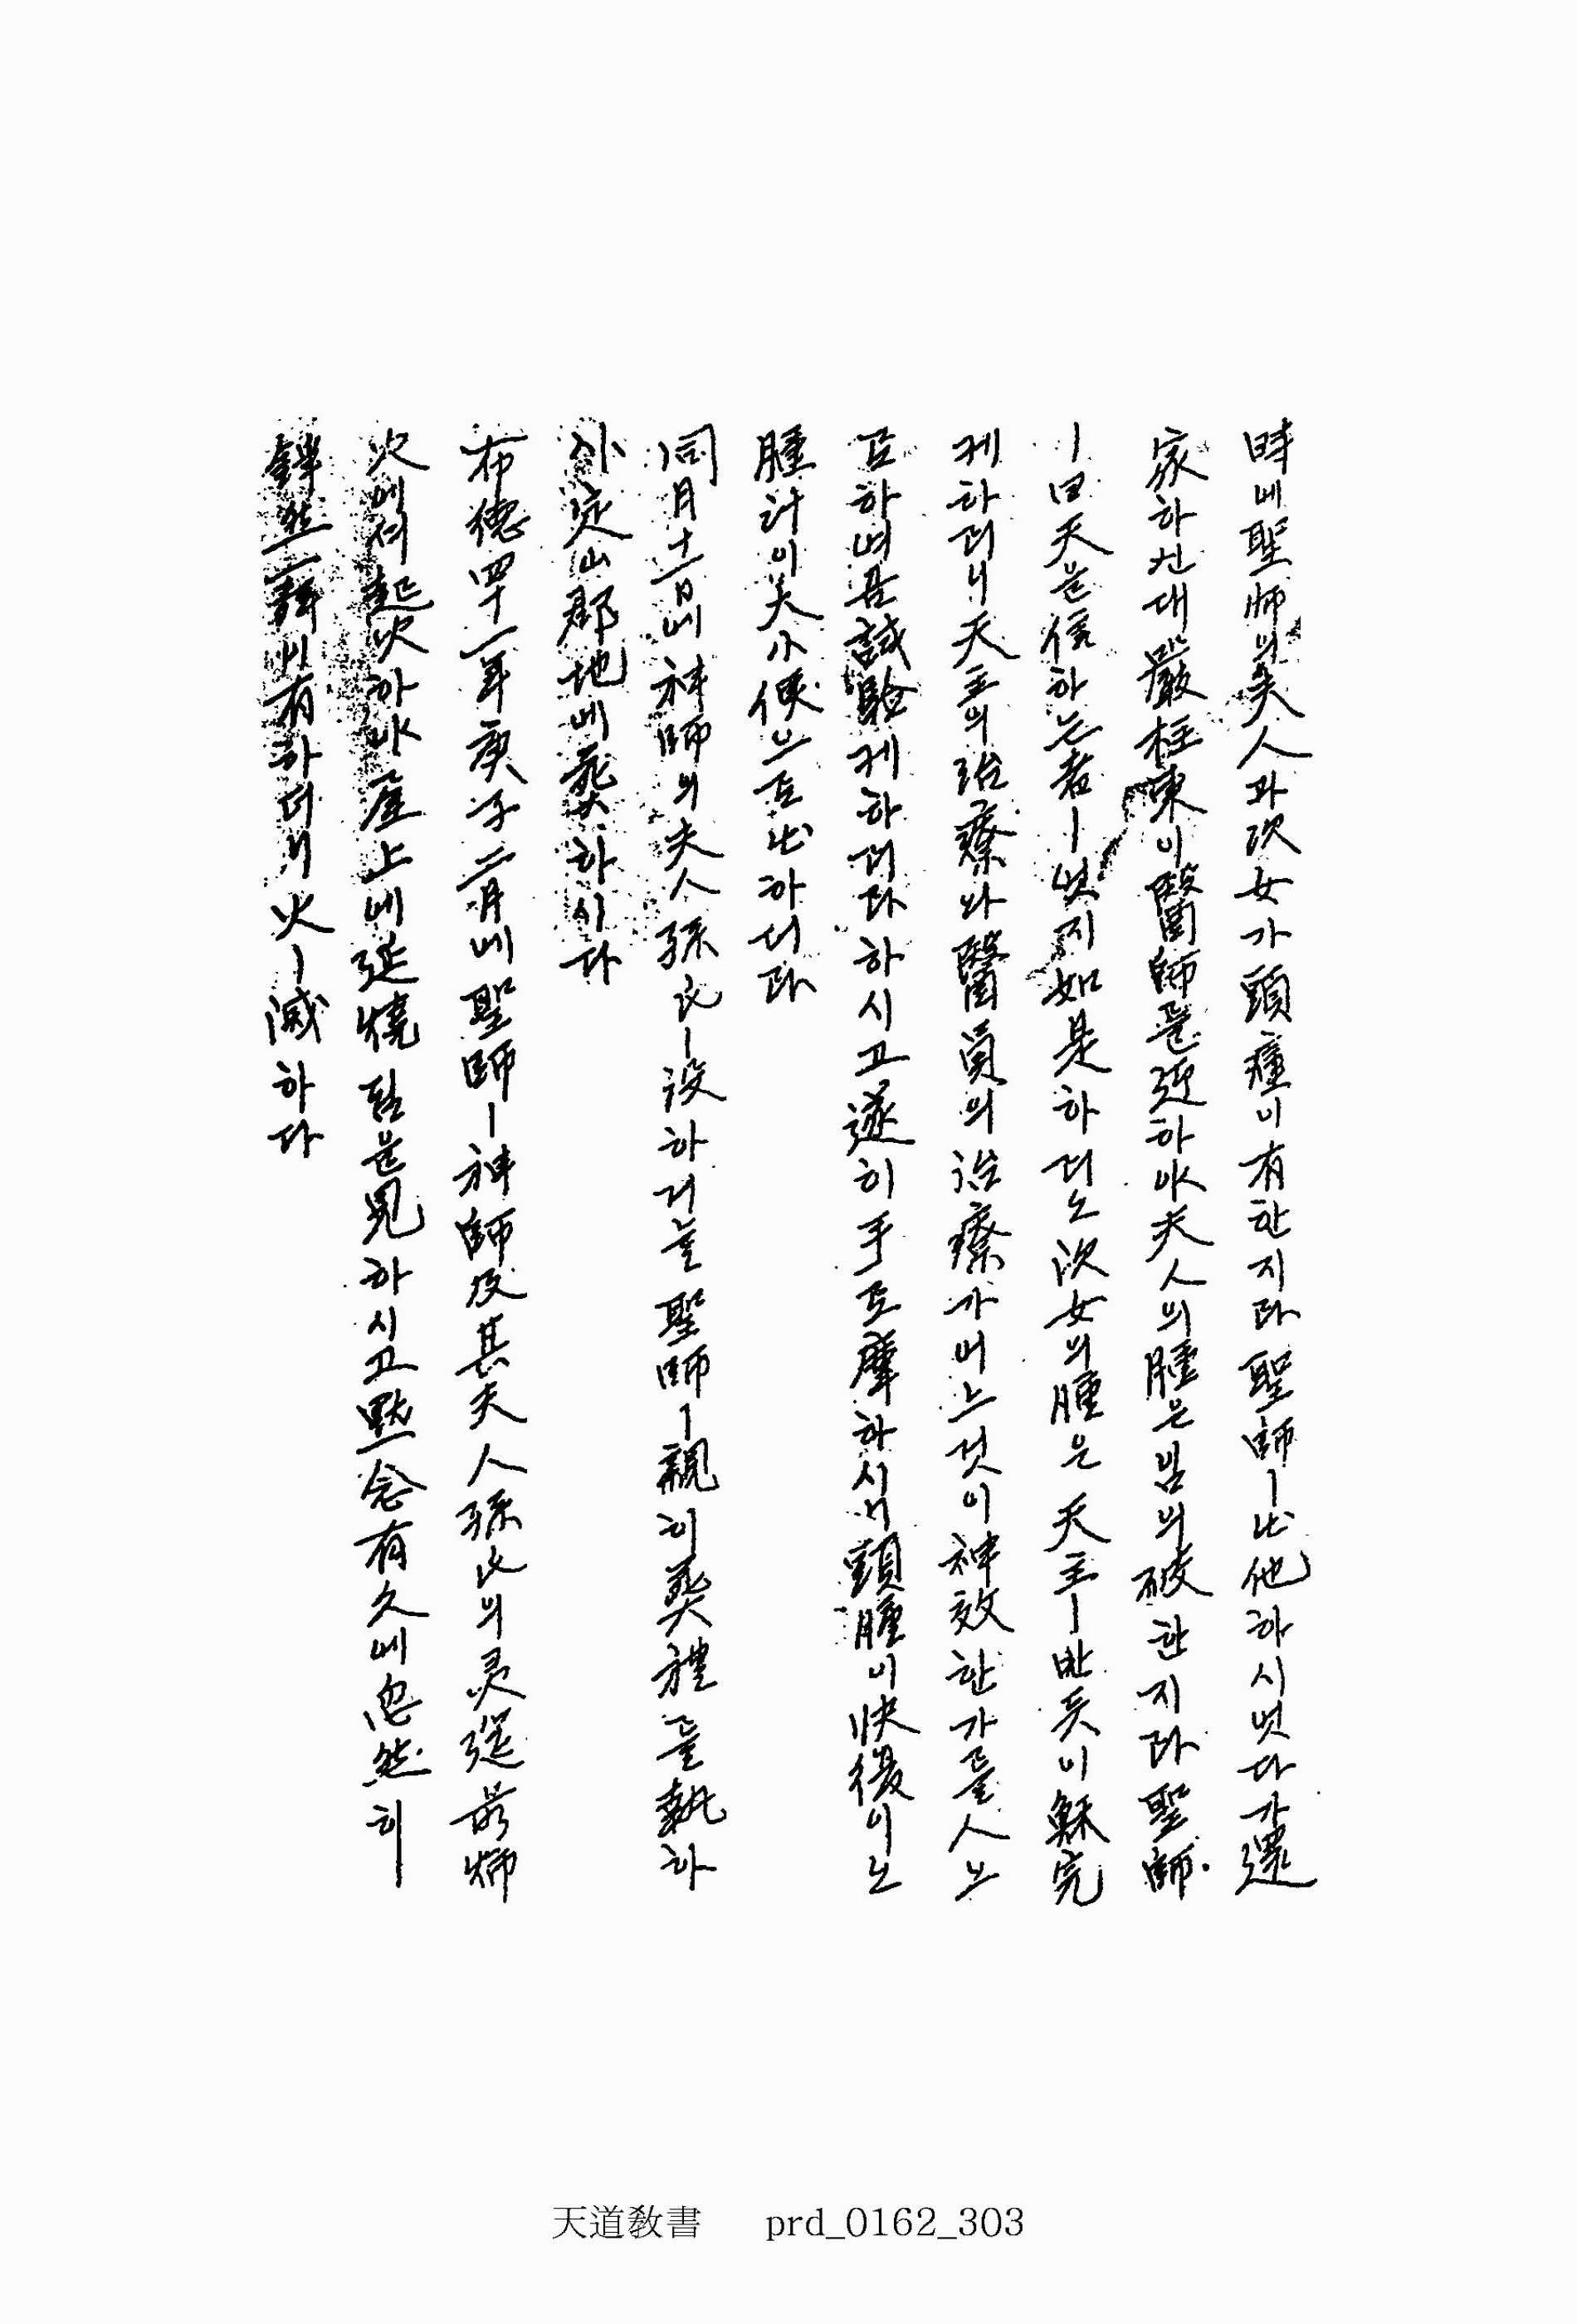 時에 聖師의 夫人과 次女가 頭瘇이 有한지라 聖師ㅣ 出他하시엿다가 還
家하신대 嚴柱東이 醫師를 延하야 夫人의 腫은 임의 破한지라 聖師
ㅣ 曰 天을 信하는 者ㅣ 엇지 如是하리노 次女의 腫은 天主ㅣ 반듯이 穌完
케 하리니 天主의 治療와 醫員의 治療가 어느 것이 神效한가를 人으
로 하여곰 試驗케 하리라 하시고 遂히 手로 摩하시니 頭腫이 快復이노
腫汁이 矢小便으로 出하더라
同月十一日에 神師의 夫人 孫氏ㅣ 沒하거늘 聖師ㅣ 親히 葬禮를 執하
사 定山郡地에 葬하시다
布德四十一年 庚子 二月에 聖師ㅣ 神師及其夫人 孫氏의 灵筵 前 焫
火에셔 起火하야 屋上에 延燒됨을 見하시고 默念有久에 忽然히
錚然一聲이 有하더니 火ㅣ 滅하다
天道敎書 prd_0162_303